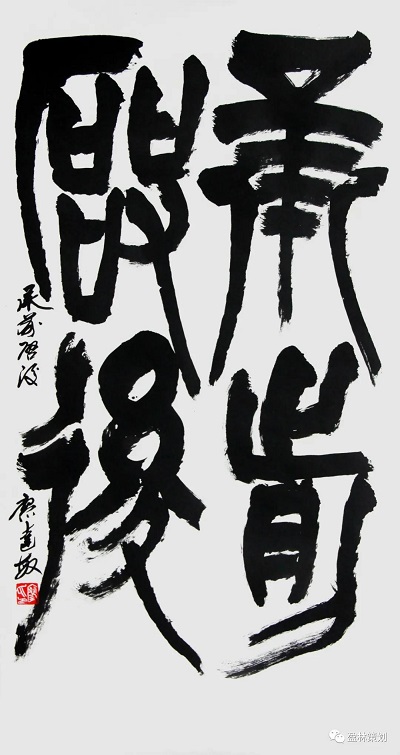 承前
啟後
承前启後
盈林策划